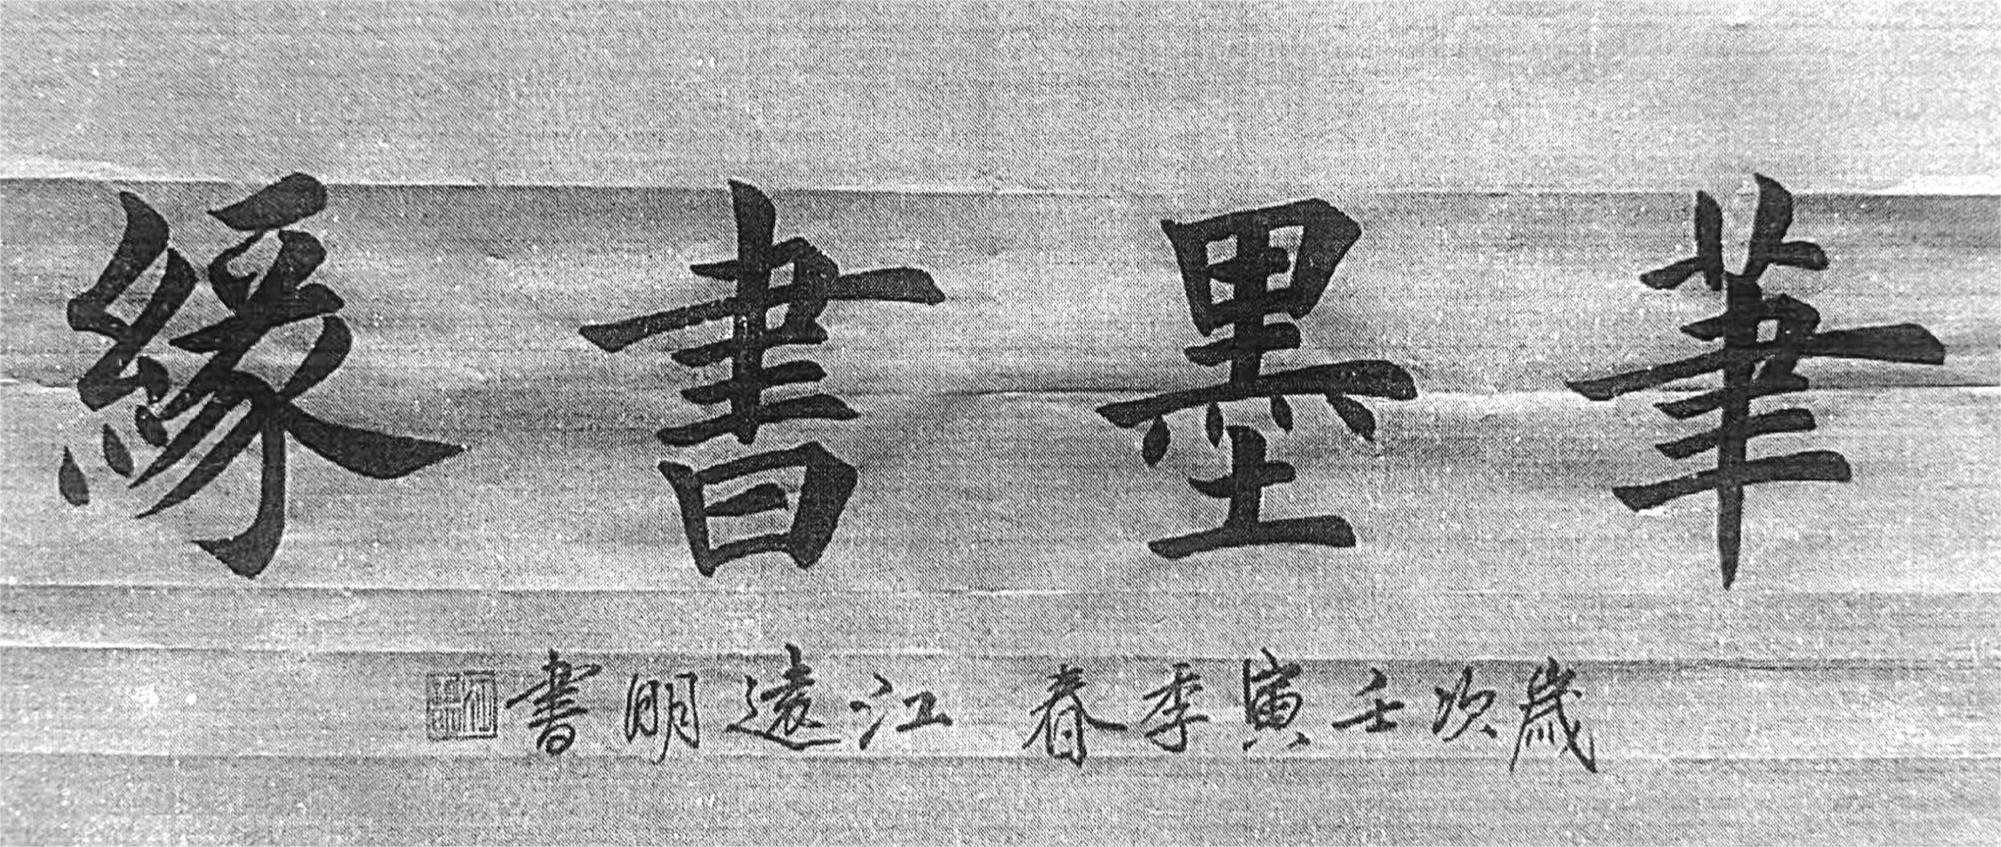 筆墨書緣
歲次壬寅季春 江遠明書